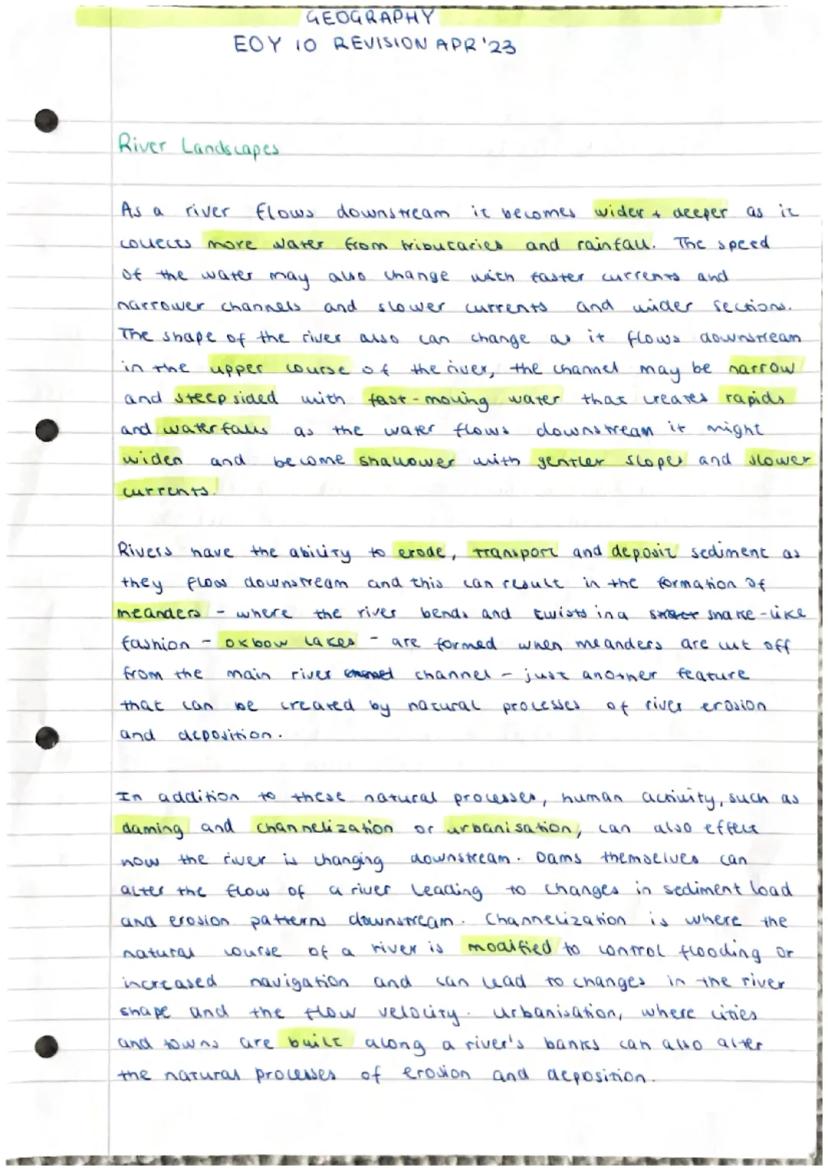 GEOGRAPHY
EOY 10 REVISION APR '23
River Landscapes
As a river flows downstream it becomes wider + deeper as it
collects more water from tributaries and rainfall. The speed
of the water may also change with faster currents and
narrower channels and slower currents and wider sections.
The shape of the river also can change as it flows downstream
in the upper course of the river, the channel may be narrow
and steep sided with fast-moving water that creates rapids
and waterfalls as the water flows downstream it might
widen and become shallower with gentler slopes and slower
currents.
Rivers have the ability to erode, transport and deposit sediment as
they flow downstream and this can result in the formation of
meanders - where the river bends and twists in a snake-like
fashion - oxbow lakes - are formed when meanders are cut off
from the main river channel - just another feature
that can be created by natural processes of river erosion
and deposition.
In addition to these natural processes, human activity, such as
daming and channelization or urbanisation, can also effect
how the river is changing downstream. Dams themselves can
alter the flow of a river leading to changes in sediment load
and erosion patterns downstream. Channelization is where the
natural course of a river is modified to control flooding or
increased navigation and can lead to changes in the river
shape and the flow velocity. Urbanisation, where cities
and towns are built along a river's banks can also alter
the natural processes of erosion and deposition.